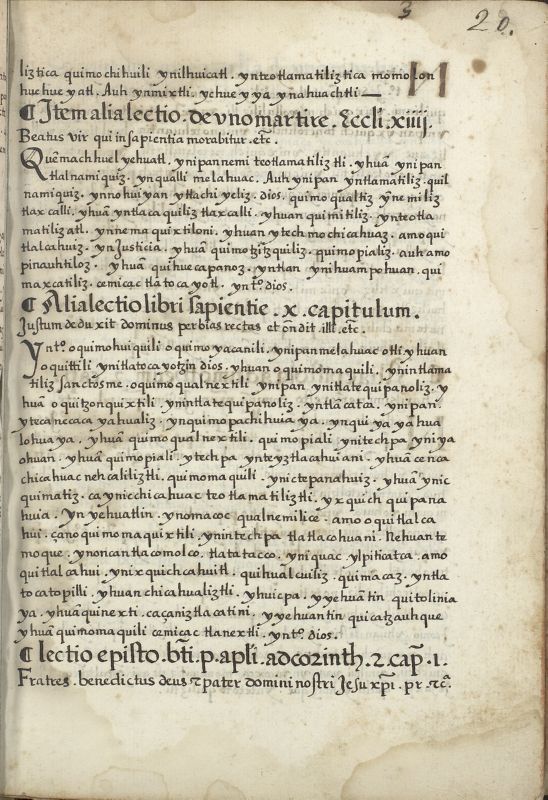 3
20.
liztica quimochihuili ynilhuicatl. ynteotlamatiliztica momolon
huehueyatl. Auh ynmixtli. ychueyya ynahuachtli
¶ Item alia lectio. de vno martire. Eccli. xiiij.
Beatus vir qui insapientia morabitur. etc̃.
Quẽmachhuel yehuatl, ynipannemi teotlamatiliztli. yhuã ynipan
tlalnamiquiz. ynqualli melahuac. Auh ynipan yntlamatiliz. quil
namiquiz. ynnohuiyan ytlachiyeliz dios. quimoqualtiz ynnemiliz
tlaxcalli. yhuã yntlacaquiliz tlaxcalli. yhuan quimitiliz. ynteotla
matilizatl. ynnemaquixtiloni. yhuan ytechmochicahuaz. amo qui
tlalcahuiz. yn Justicia. yhuã quimotzitzquiliz. quimopializ. auh amo
pinauhtiloz. yhuã quihuecapanoz. yntlan ynihuampohuan. qui
maxcatiliz. cemicac tlatocayotl. ynto͂. dios.
¶ Alia lectio libri sapientie. x. capitulum.
Justum deduxit dominus per bias rectas et on̄dit. illi. etc.
Ynto͂. oquimohuiquili oquimoyacanili. ynipan melahuac otli yhuan
oquittili ynitlatocayotzin dios. yhuan oquimomaquili. ynintlama
tiliz sanctosme. oquimoqualnextili ynipan ynitlatequipanoliz. y
huã oquitzonquixtili. ynintlatequipanoliz. yntlãcatca. ynipan.
ytecanecacayahualiz. ynquimopachihuiaya. ynquiyayahua
lohuaya. yhuã quimoqualnextili. quimopiali ynitechpa yniya
ohuan. yhuã quimopiali. ytechpa ynteyztlacahuiani. yhuã cenca
chicahuac nehcaliliztli. quimomaquili. ynictepanahuiz. yhuã ynic
quimatiz. caynicchicahuac teotlamatiliztli. yxquich quipana
huia. Yn yehuatlin. ynomacoc qualnemilice. amo oquitlalca
hui. çano quimomaquixtili. ynintechpa tlatlacohuani. Nehuan te
moque. ynoncan tlacomolco. tlatatacco. yniquac ylpiticatca. amo
quitlalcahui. ynixquichcahuitl. quihuãlcuiliz. quimacaz. yntla
tocatopilli. yhuan chicahualiztli. yhuicpa. yyehuãtin quitolinia
ya. yhuã quinexti. caçaniztlacatini. yyehuantin quicatzauhque
yhuã quimomaquili cemicac tlanextli. ynto͂. dios.
¶ lectio episto. bt̄i. p. apli. ad corinth. 2. cap̄. 1.
Fratres. benedictus deus et pater domini nostri Jesu xp̄i. pr. etc̄.